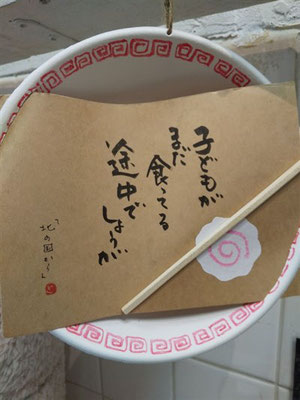 子どもが
まだ
食ってる
途中で
しょうが
「北の国から」